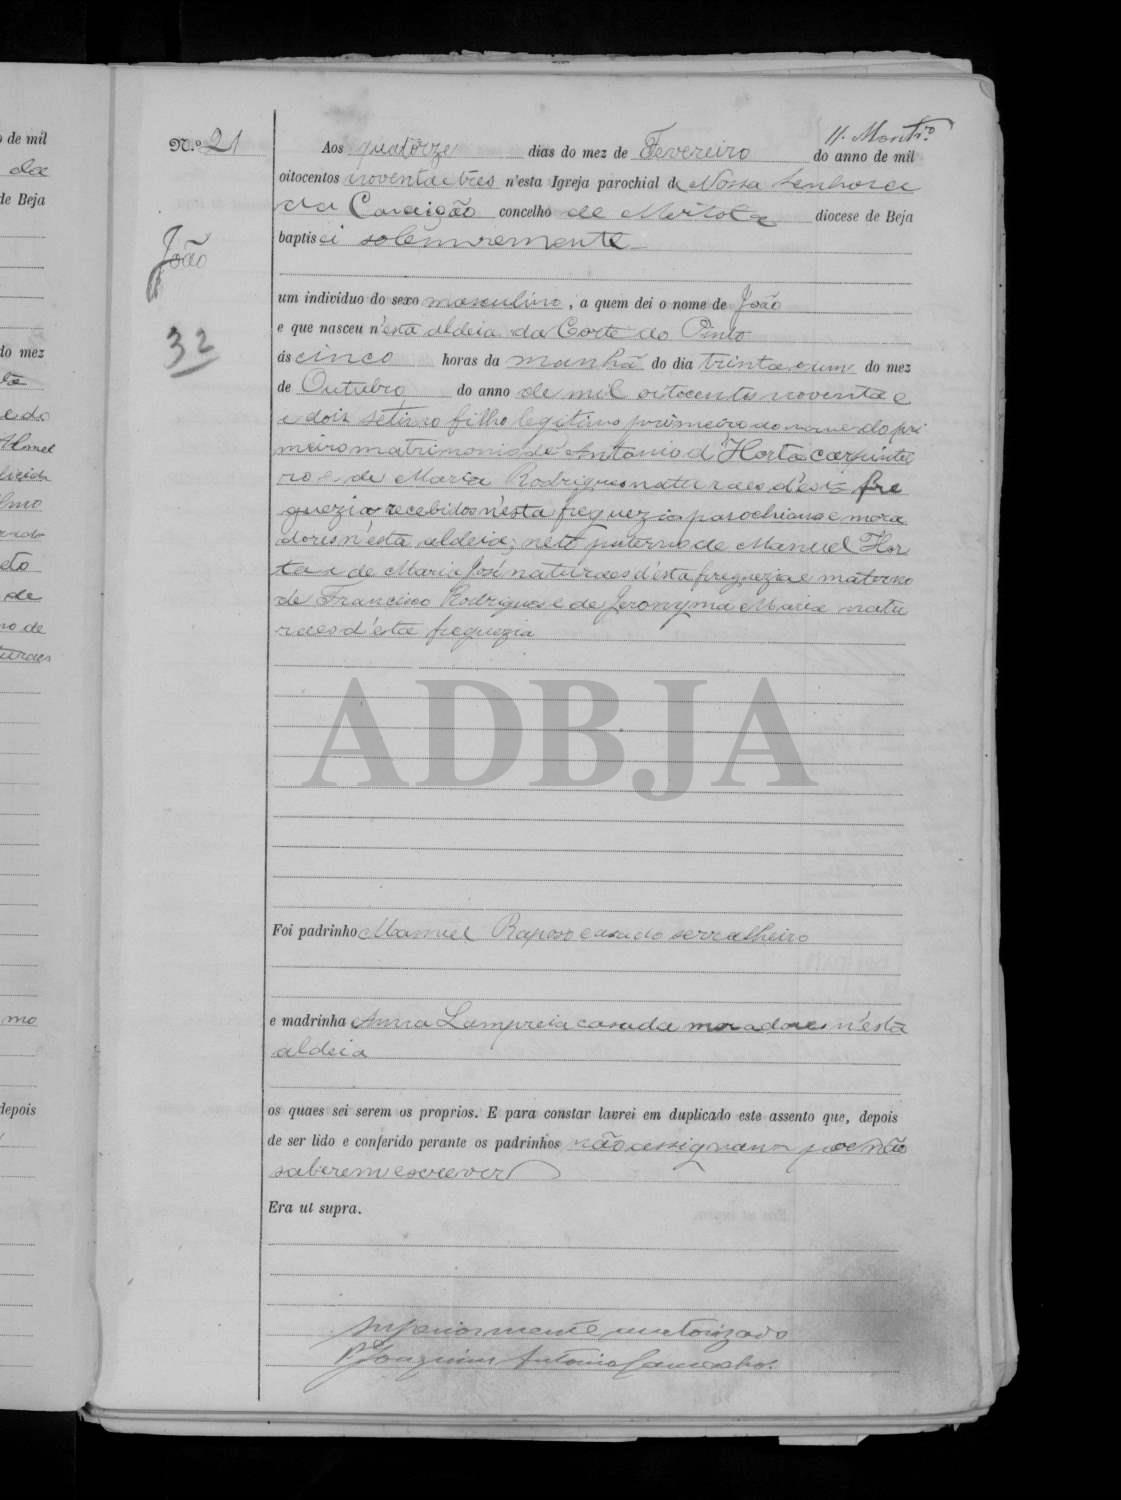 N.º 21
Aos quatorze dias do mez de Fevereiro do anno de mil
oitocentos noventa e tres n'esta Igreja parochial de Nossa Senhora
da Conceição concelho de Mertola diocese de Beja
baptisei solemnemente
João
um individuo do sexo masculino, a quem dei o nome de João
e que nasceu n'esta aldeia da Corte do Pinto
32
ás cinco horas da manhã do dia trinta e um do mez
de Outubro do anno de mil oitocentos noventa e
e dois filho legitimo primeiro do nome do pri
meiro matrimonio de Antonio d'Horta carpintei
ro e de Maria Rodrigues naturaes d'esta fre
guezia recebidos n'esta freguezia parochianos e mora
dores n'esta aldeia; neto paterno de Manuel Hor
ta e de Maria José naturaes d'esta freguezia e materno
de Francisco Rodrigues e de Jeronyma Maria natu
raes d'esta freguezia
ADBJA
Foi padrinho Manuel Raposo casado serralheiro
e madrinha Anna Lampreia casada moradores n'esta
aldeia
os quaes sei serem os proprios. E para constar lavrei em duplicado este assento que, depois
de ser lido e conferido perante os padrinhos não assignam por não
saberem escrever
Era ut supra.
Superiormente auctorizado
P. Joaquim Antonio